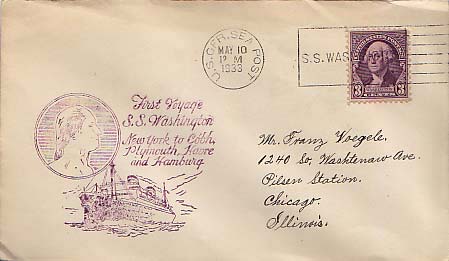 U.S. GER. SEA POST
MAY 10
M
1933
S.S. WAS
3 3
First Voyage
S.S. Washington
New York to Cobh,
Plymouth, Havre
and Hamburg.
Mr. Franz Voegele.
1240 So. Washtenaw Ave.
Pilsen Station.
Chicago.
Illinois.